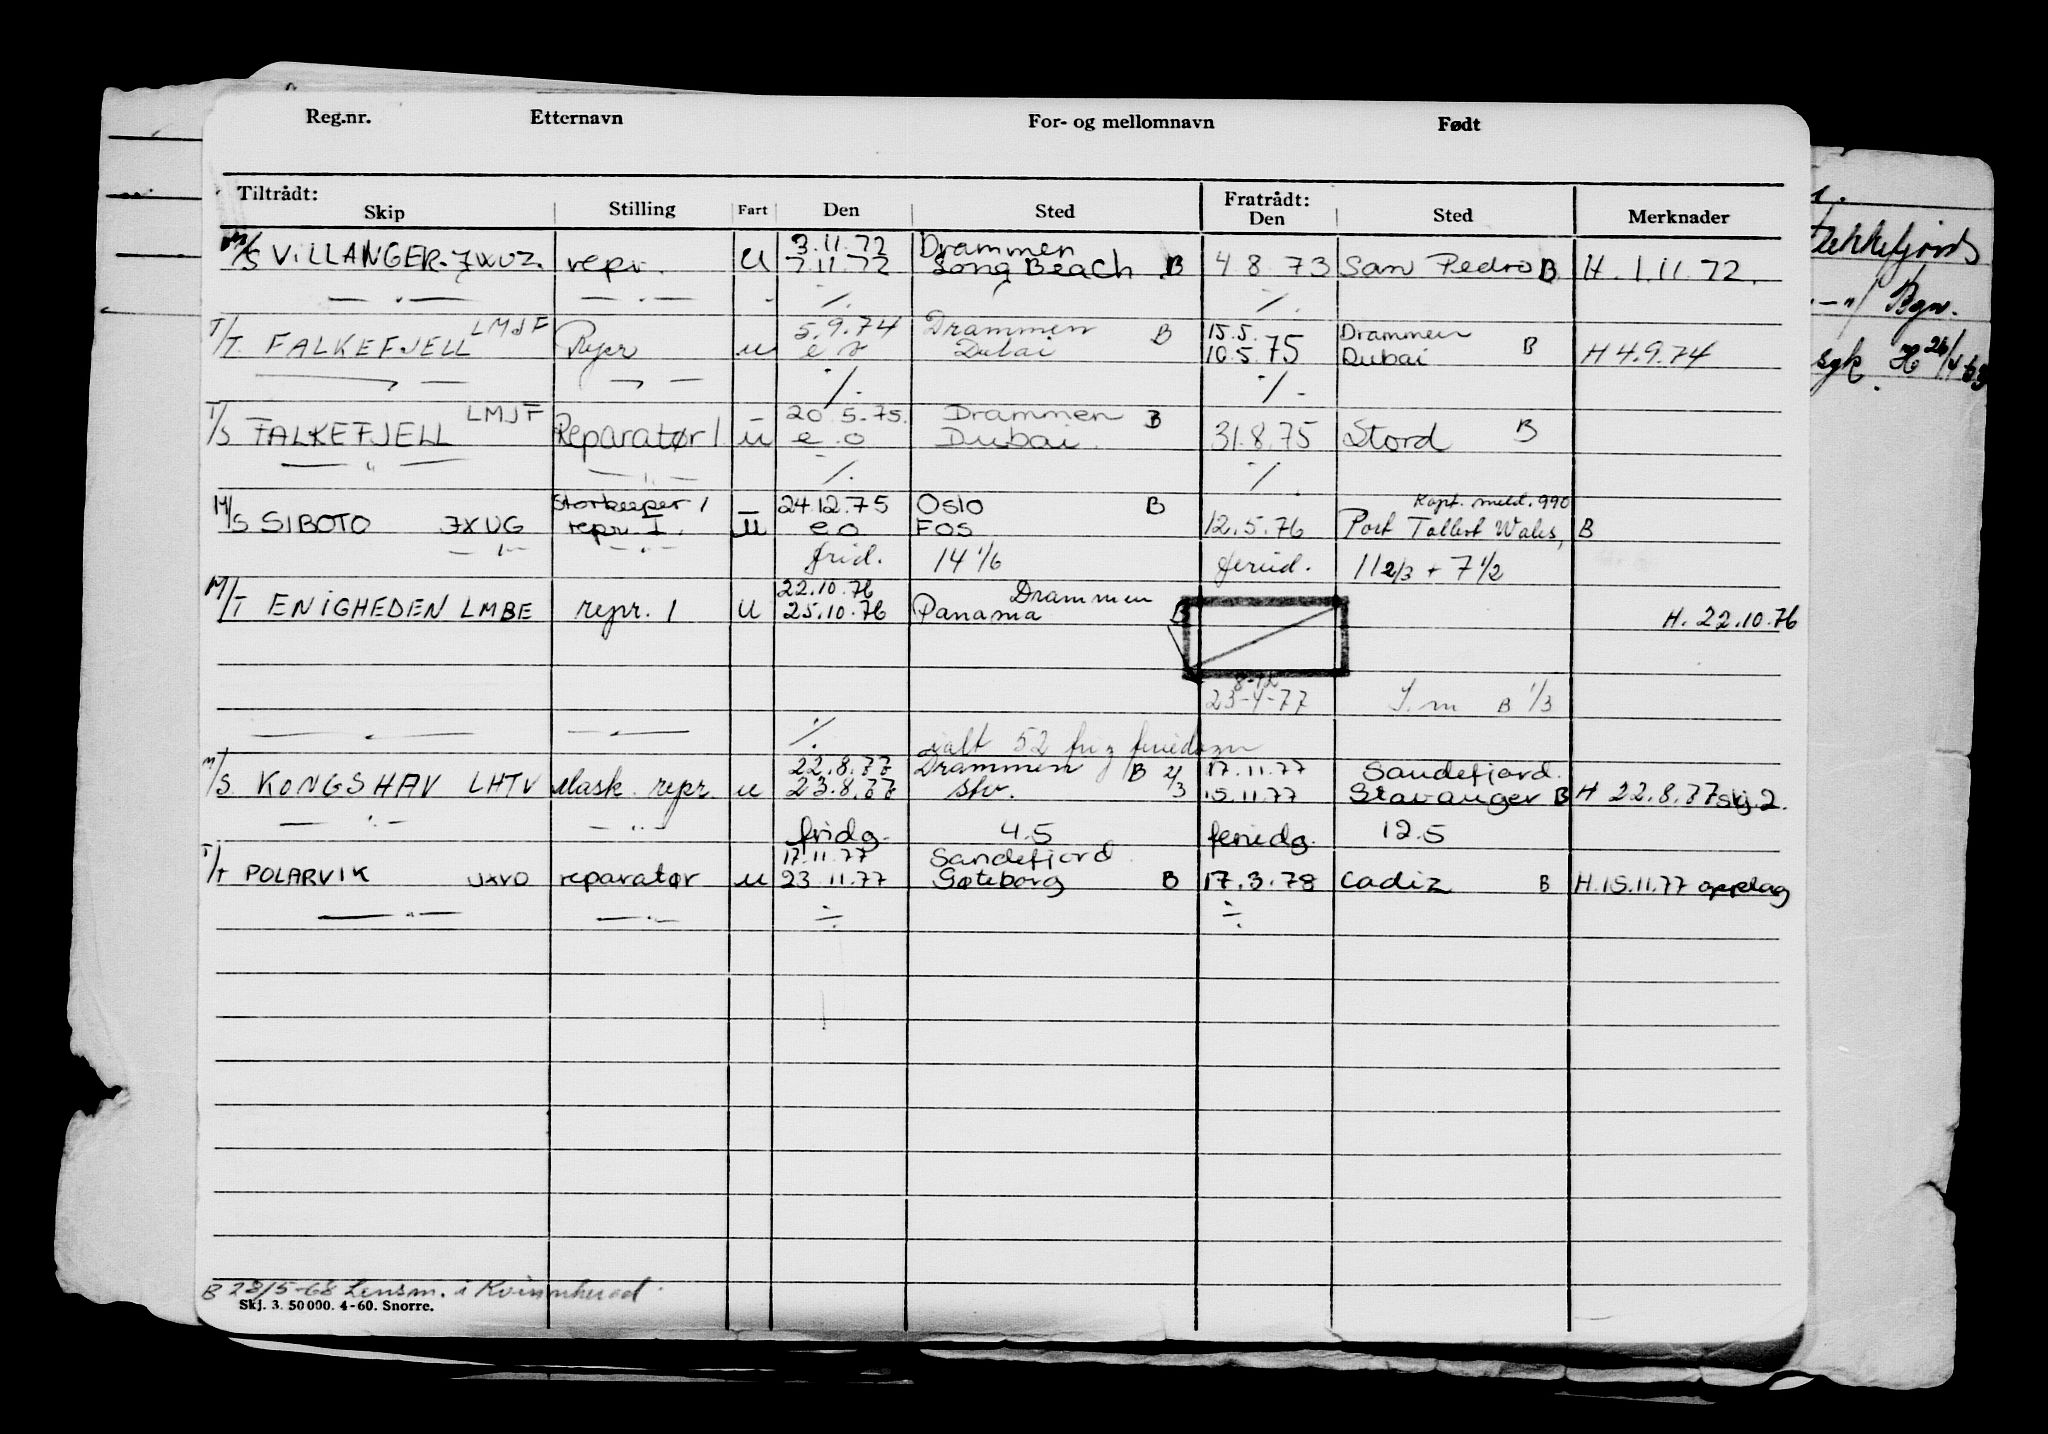 Reg.nr. Etternavn For- og mellomnavn Født
Tiltrådt: Fratrådt:
Skip Stilling Fart Den Sted Den Sted Merknader
3.11.72 Drammen
M/S ViLLANGER - JWUZ. repr. U 7.11.72 Long Beach B 4.8.73 San Pedro B H. 1.11.72.
— " — — " — ./. ./.
LMJF 5.9.74 Drammen B 15.5. Drammen
T/T FALKEFJELL Repr u e o Dubai 10.5.75 Dubai B H 4.9.74
— " — — " — ./. ./.
LMJF 20.5.75. Drammen B
T/S FALKEFJELL Reparatør 1 u e.o Dubai. 31.8.75 Stord B
— " — — " — ./. ./.
Storkeeper / 24.12.75 Oslo B Kapt. meld. 990
M/S SIBOTO JXUG repr. I. u e.o FOS 12.5.76 Port Talbot Wales, B
— " — — " — frid. 14 1/6 feried. 11 2/3 + 7 1/2
22.10.76 Drammen
M/T ENiGHEDEN LMBE repr. 1 U 25.10.76 Panama B H. 22.10.76
8-12
23-4-77 S.m B 1/3
— " — — " — ./. ialt 52 fri g feriedager
22.8.77 Drammen B 2/3 17.11.77 Sandefjord.
M/S KONGSHAV LHTV Mask. repr. u 23.8.77 Stv. 15.11.77 Stavanger B H 22.8.77 skj.2.
— " — — " — fridg. 4.5 feriedg. 12.5
17.11.77 Sandefjord
T/T POLARVIK JXVO reparatør u 23.11.77 Gøteborg B 17.3.78 Cadiz B H.15.11.77 opplag
— " — — " — ./. ./.
B 28/5-68 Lensm. i Kvinnherad.
Skj. 3. 50 000. 4-60. Snorre.
Flekkefjords
— " / Bgn.
syk. H 26/4 63